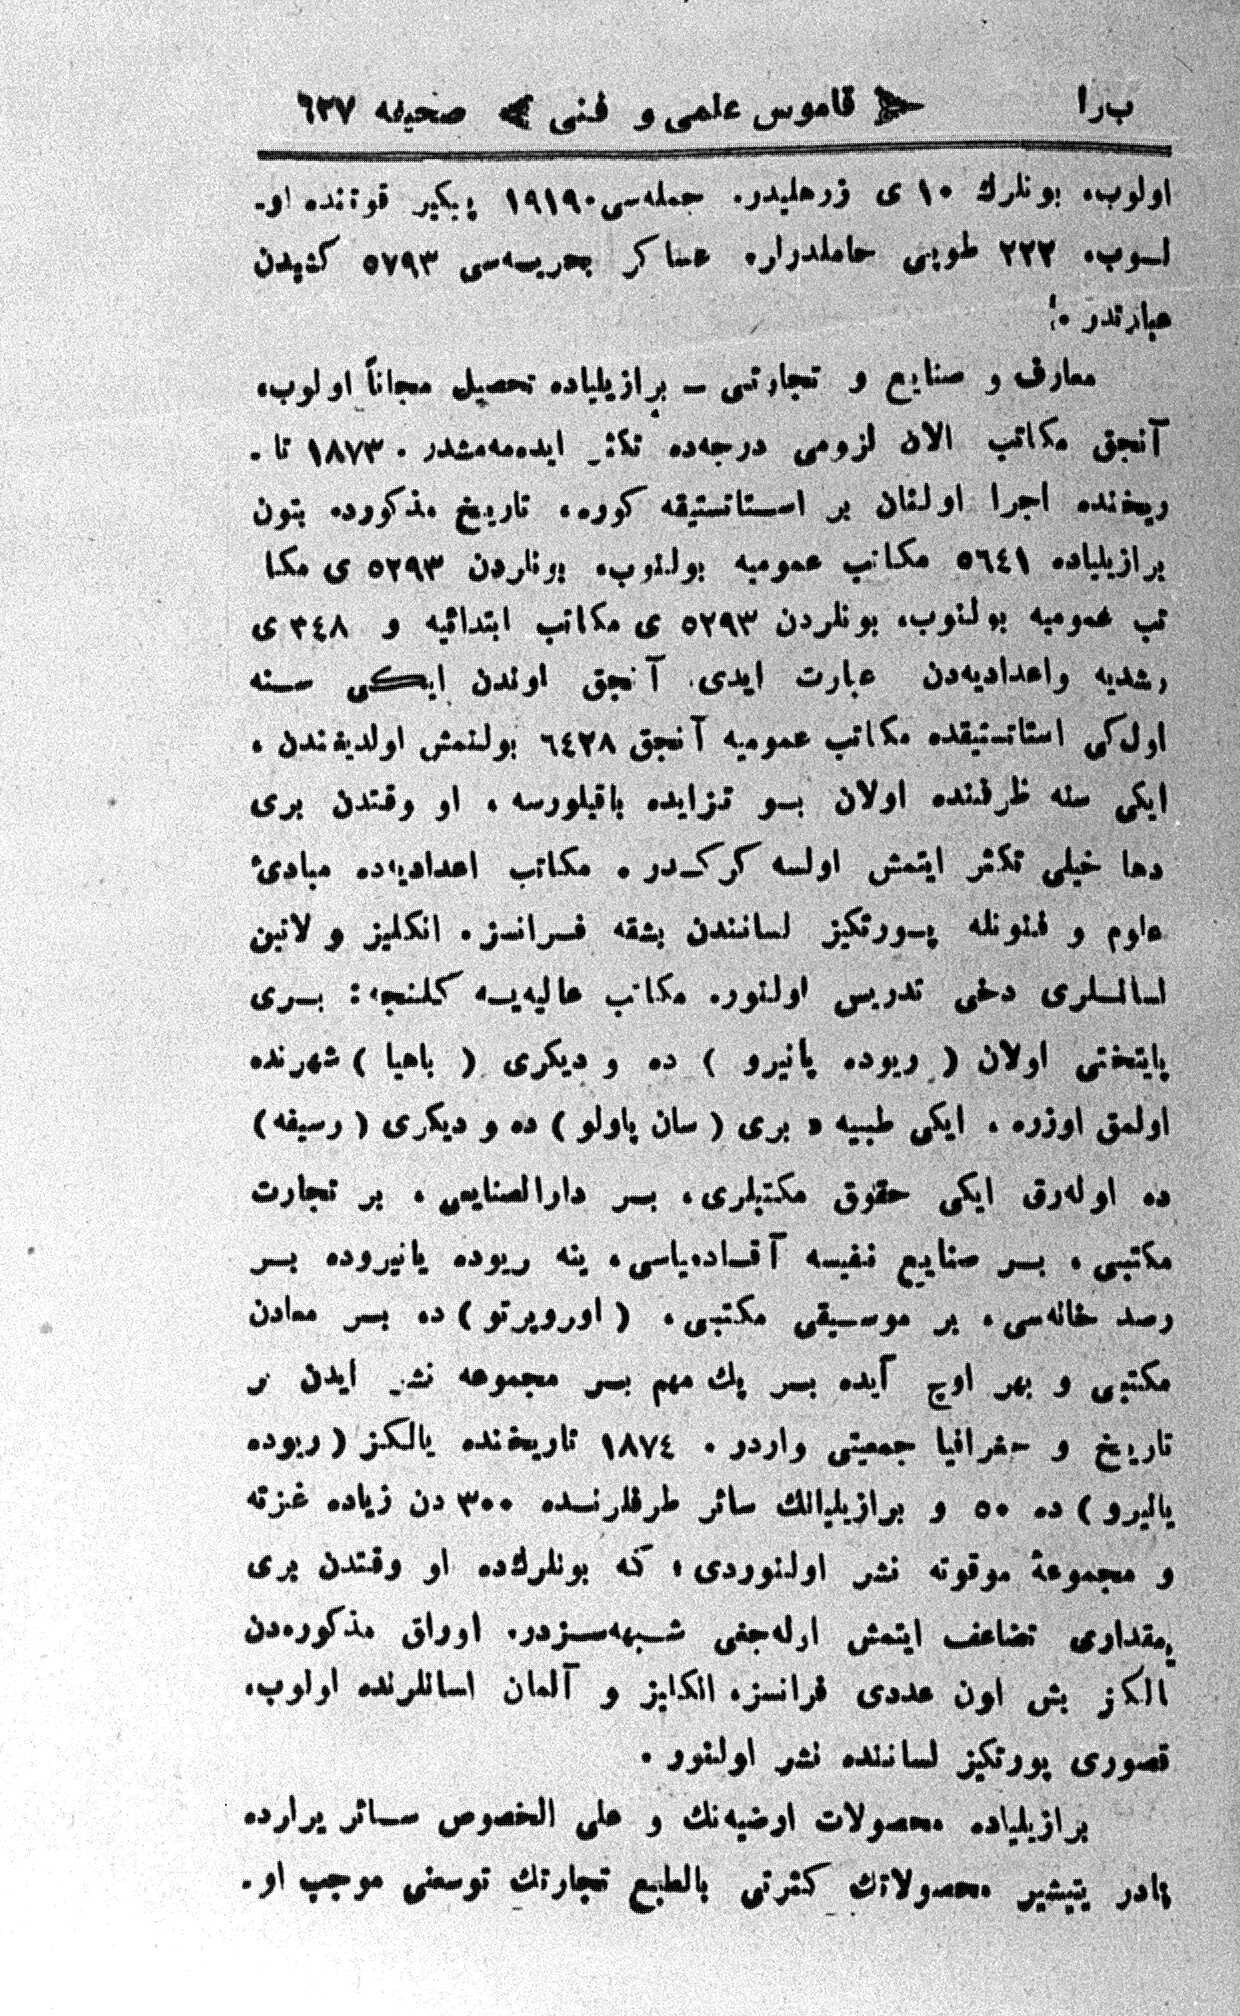 ب‌را قاموس علمی و فنی صحیفه ٦٢٧
اولوب، بونلرك ١٠ ی زرهلیدر. جمله‌سی ١٩١٩٠ پیكیر قوتنده او-
لـوب، ٢٢٢ طوپی حاملدرلر. عساكر بحریـه‌سی ٥٧٩٣ كشیدن
عبارتدر .
معارف و صنایع و تجارتی — برازیلیاده تحصیل مجاناً اولوب،
آنجق مكاتب الان لزومی درجه‌ده تكثر ایده‌مه‌مشدر . ١٨٧٣ تا-
ریخنده اجرا اولنان بر اسـتاتستیقه كوره، تاریخ مذكورده بتون
برازیلیاده ٥٦٤١ مكاتب عمومیه بولنوب، بونلردن ٥٢٩٣ ی مكا
تب عمومیه بولنوب، بونلردن ٥٢٩٣ ی مكاتب ابتدائیه و ٣٤٨ ی
رشدیه واعدادیه‌دن عبارت ایدی. آنجق اوندن ایـكی سـنه
اول‌كی استاتستیقده مكاتب عمومیه آنجق ٦٤٢٨ بولنمش اولدیغندن ،
ایكی سنه ظرفنده اولان بـو تزایده باقیلورسه ، او وقتدن بری
دها خیلی تكثر ایتمش اولسه كركـدر . مكاتب اعدادیه‌ده مبادئ
علوم و فنونله پـورتكیز لسانندن بشقه فـرانسز. انكلیز و لاتین
لسانـلری دخی تدریس اولنور. مكاتب عالیه‌یـه كلنجه : بـری
پایتختی اولان ( ریوده یانیرو ) ده و دیكری ( باهیا ) شهرنده
اولمق اوزره ، ایكی طبیه و بری ( سان پاولو ) ده و دیكری ( رسیفه )
ده اوله‌رق ایكی حقوق مكتبلری، بـر دارالصنایعی، بر تجارت
مكتبی ، بـر صنایع نفیسه آقـاده‌یاسی، ینه ریوده یانیروده بـر
رصد خانه‌سی، بر موسـیقی مكتبی، ( اوروپرتو ) ده بـر معادن
مكتبی و بهر اوچ آیده بـر پك مهم بـر مجموعه نشر ایدن بر
تاریخ و جغرافیا جمعیتی واردر . ١٨٧٤ تاریخنده یالكز ( ریوده
یانیرو ) ده ٥٠ و برازیلیانك سائر طرفلرنـده ٣٠٠ دن زیاده غزته
و مجموعهٔ موقوته نشر اولنوردی ؛ كه بونلرك‌ده او وقتدن بری
مقداری تضاعف ایتمش اوله‌جغی شـبهه‌سـزدر. اوراق مذكوره‌دن
یالكز بش اون عددی فرانسز، انكلیز و آلمان لسانلرنده اولوب،
قصوری پورتكیز لساننده نشر اولنور .
برازیلیاده محصولات ارضیه‌نك و علی الخصوص سـائر یرلرده
نادر یتیشیر محصولاتك كثرتی بالطبع تجارتك توسعنی موجب او-